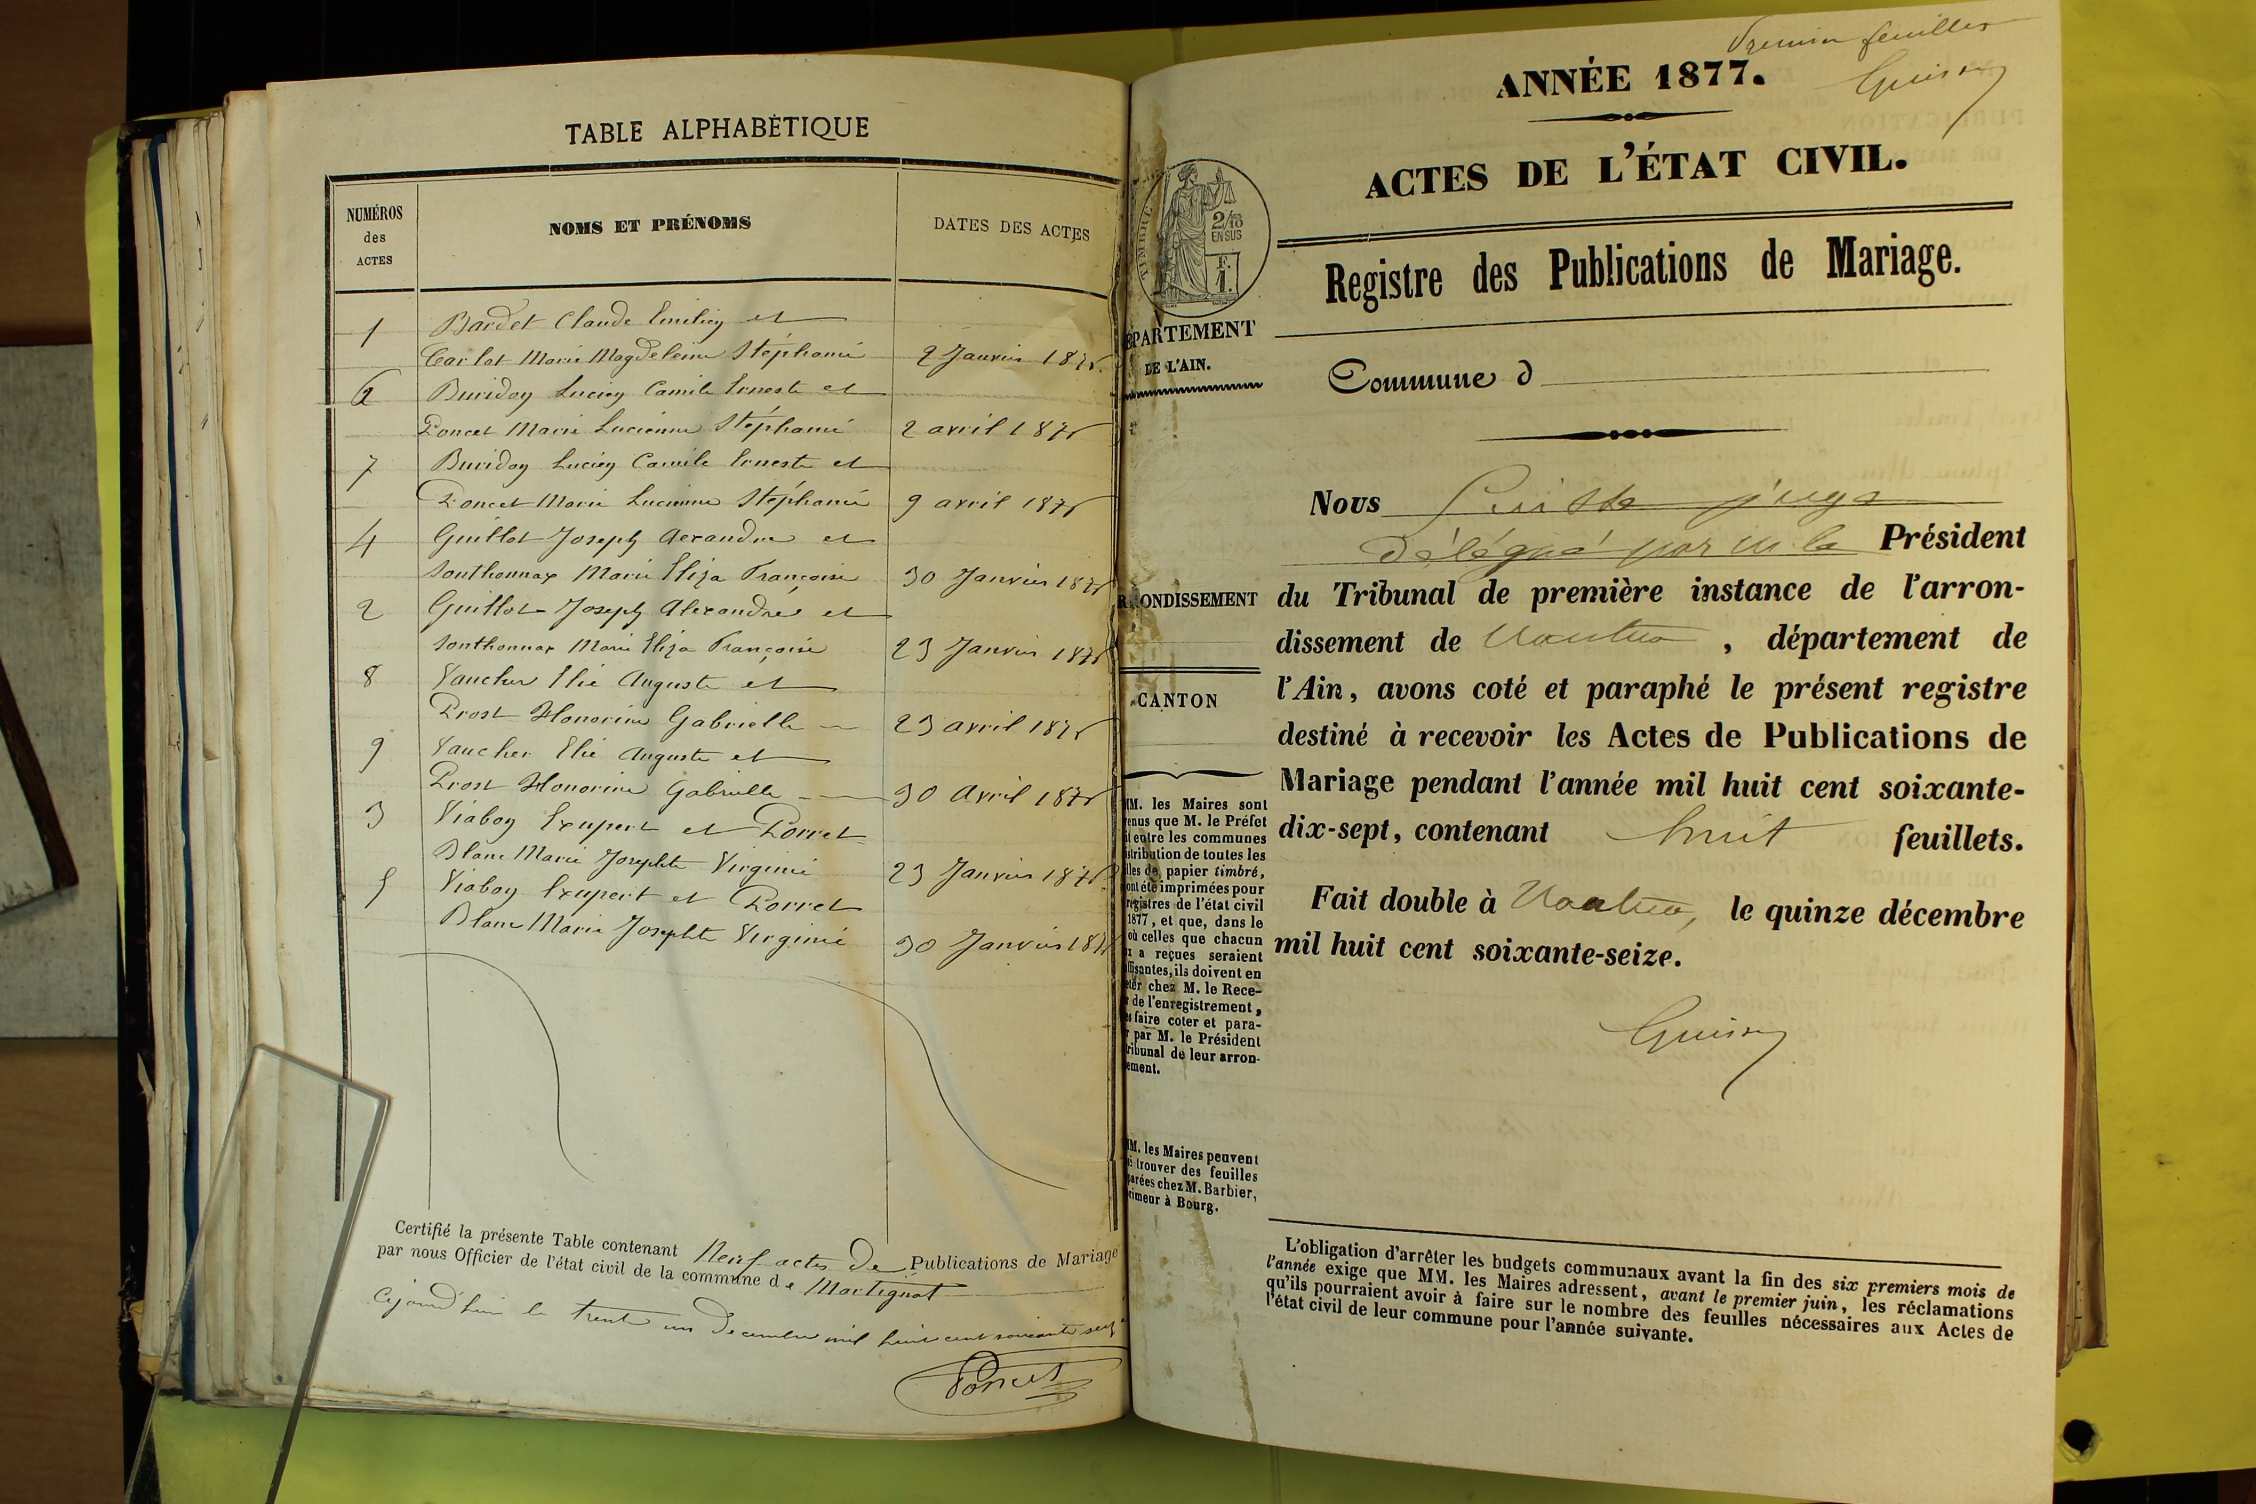 TABLE ALPHABÉTIQUE
NUMÉROS des ACTES
NOMS ET PRÉNOMS
DATES DES ACTES
1 Bardet Claude Emilien et
Carlot Marie Magdeleine Stéphanie 2 Janvier 1876
6 Buridon Lucien Camile Erneste et
Poncet Marie Lucienne Stéphanie 2 avril 1876
7 Buridon Lucien Camile Erneste et
Poncet Marie Lucienne Stéphanie 9 avril 1876
4 Guillot Joseph Aexandre et
Sonthonnax Marie Eliza Françoise 30 Janvier 1876
2 Guillot Joseph Alexandre et
Sonthonnax Marie Eliza Françoise 23 Janvier 1876
8 Vaucher Elie Auguste et
Prost Honorine Gabrielle 23 avril 1876
9 Vaucher Elie Auguste et
Prost Honorine Gabrielle 30 Avril 1876
3 Viaboy Exupert et Porret
Blanc Marie Josephte Virginie 23 Janvier 1876
5 Viaboy Exupert et Porret
Blanc Marie Josephte Virginie 30 Janvier 1876
Certifié la présente Table contenant Neuf actes de Publications de Mariage
par nous Officier de l'état civil de la commune de Martignat
Cejourd'hui le trente un Decembre mil huit cent soixante seize
Poncet
Premier feuillet
ANNÉE 1877.
ACTES DE L'ÉTAT CIVIL.
TIMBRE
2/10
EN SUS
F.
1.
Registre des Publications de Mariage.
PARTEMENT
DE L'AIN.
Commune d
ONDISSEMENT
CANTON
MM. les Maires sont
enus que M. le Préfet
entre les communes
stribution de toutes les
lles de papier timbré,
ont été imprimées pour
registres de l'état civil
1877, et que, dans le
où celles que chacun
a reçues seraient
ffisantes, ils doivent en
chez M. le Rece-
de l'enregistrement,
faire coter et para-
par M. le Président
tribunal de leur arron-
ement.
MM. les Maires peuvent
trouver des feuilles
parées chez M. Barbier,
rimeur à Bourg.
Nous juge
délégué par m. le Président
du Tribunal de première instance de l'arron-
dissement de Nantua, département de
l'Ain, avons coté et paraphé le présent registre
destiné à recevoir les Actes de Publications de
Mariage pendant l'année mil huit cent soixante-
dix-sept, contenant huit feuillets.
Fait double à Nantua, le quinze décembre
mil huit cent soixante-seize.
L'obligation d'arrêter les budgets communaux avant la fin des six premiers mois de
l'année exige que MM. les Maires adressent, avant le premier juin, les réclamations
qu'ils pourraient avoir à faire sur le nombre des feuilles nécessaires aux Actes de
l'état civil de leur commune pour l'année suivante.